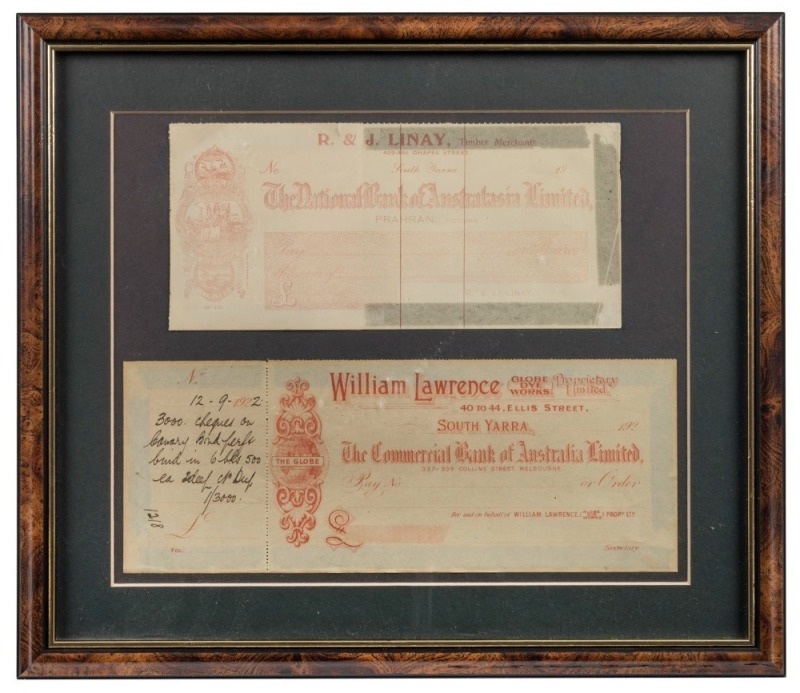 R. & J. LINAY, Timber Merchants
CHAPEL STREET.
No South Yarra 19
The National Bank of Australasia Limited,
PRAHRAN,
Pay or Bearer
£
R. & J. LINAY.
No
12 - 9 - 1922
3000 cheques on
Canary Bond perf
bind in 6 bks 500
ea
1/3000.
1218
£
For
THE GLOBE
William Lawrence GLOBE DYE WORKS Proprietary Limited.
40 TO 44, ELLIS STREET,
SOUTH YARRA, 192
The Commercial Bank of Australia Limited,
337-339 COLLINS STREET, MELBOURNE.
Pay No or Order
For and on behalf of WILLIAM LAWRENCE PROPY LTD
£
Secretary